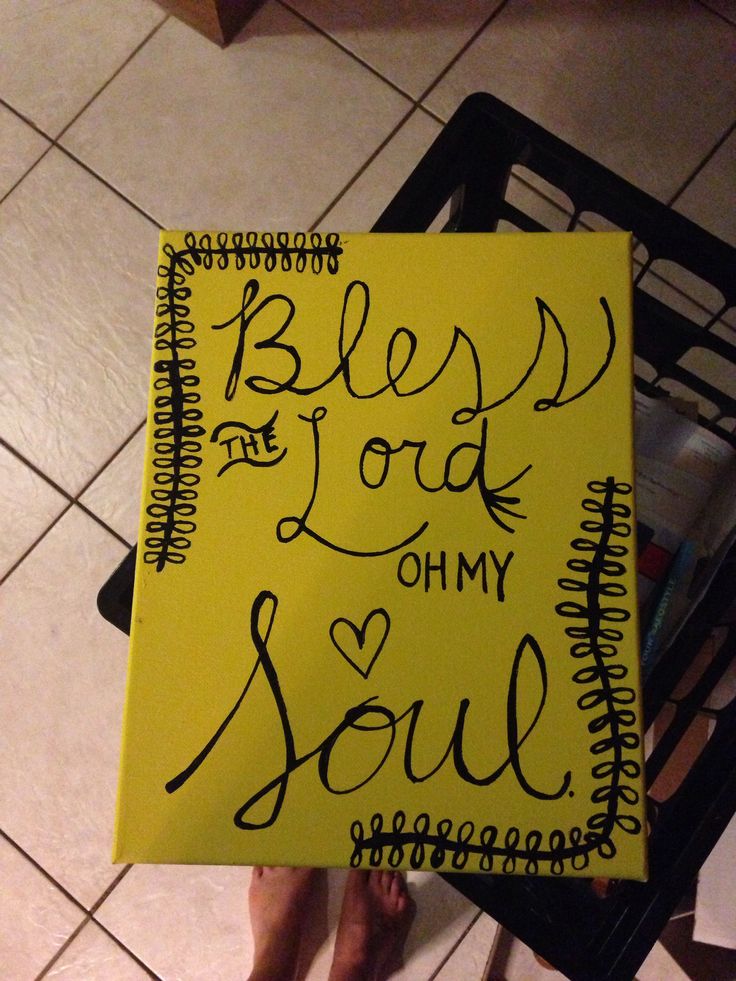 Bless
THE Lord
OH MY
Soul.